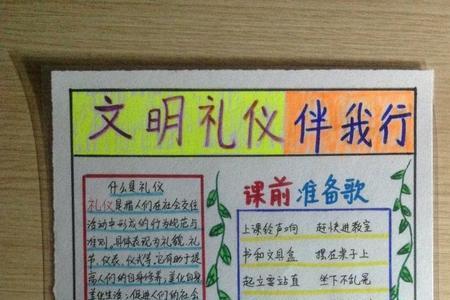 文明礼仪伴我行
什么是礼仪
礼仪是指人们在社会交往
活动中形成的行为规范与
准则,具体表现为礼貌、礼
节、仪表、仪式等,它有助于提
高人们的自身修养,美化自身
美化生活,促进人们的社会
课前准备歌
上课铃声响 赶快进教室
书和文具盒 摆在桌子上
起立要站直 坐下不乱晃